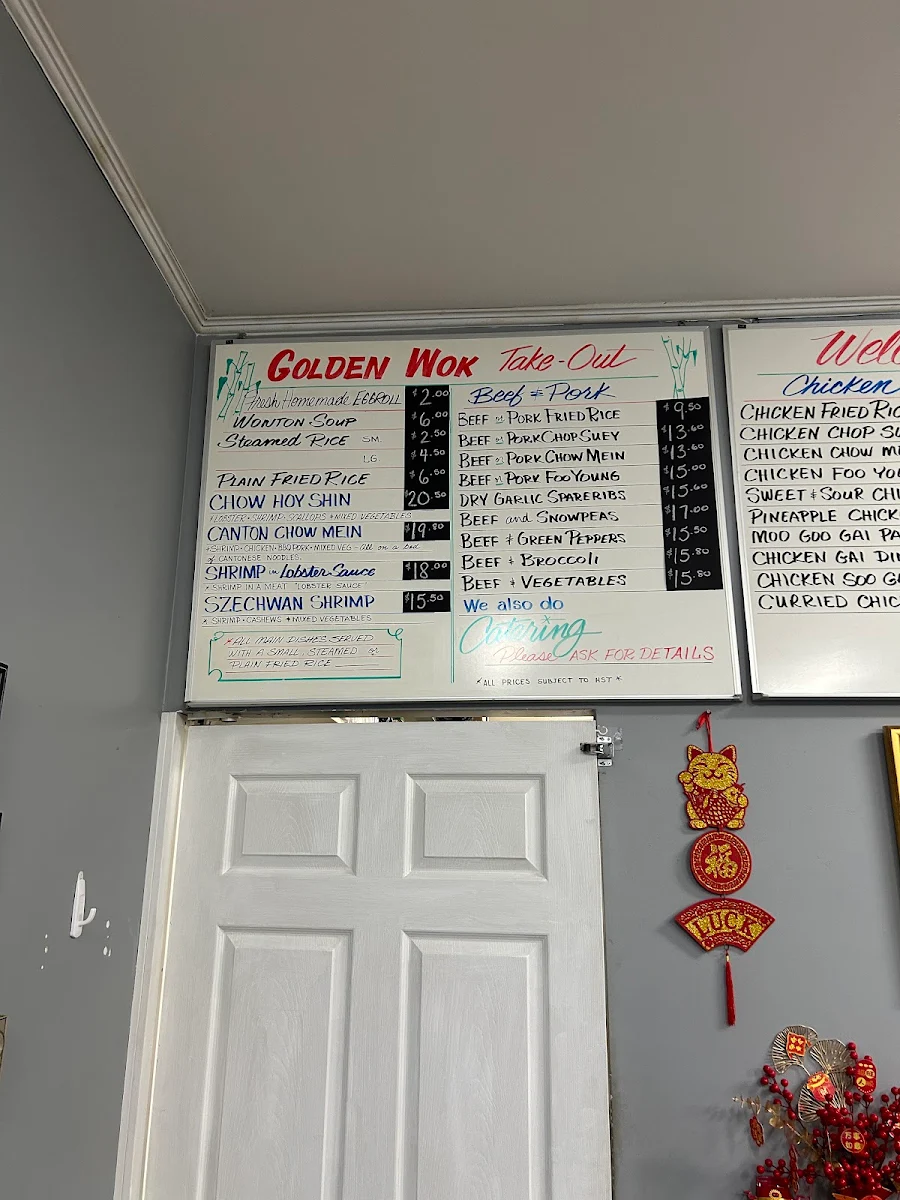 GOLDEN WOK Take-Out
Fresh Homemade EGGROLL $2.00
WONTON SOUP $6.00
Steamed RICE SM. $2.50
LG. $4.50
PLAIN FRIED RICE $6.50
CHOW HOY SHIN $20.50
*LOBSTER • SHRIMP • SCALLOPS & MIXED VEGETABLES
CANTON CHOW MEIN $19.80
*SHRIMP • CHICKEN • BBQ PORK • MIXED VEG - All on a bed
of CANTONESE NOODLES.
SHRIMP in Lobster Sauce $18.00
* SHRIMP IN A MEAT "LOBSTER SAUCE"
SZECHWAN SHRIMP $15.50
* SHRIMP • CASHEWS & MIXED VEGETABLES
*ALL MAIN DISHES SERVED
WITH A SMALL STEAMED or
PLAIN FRIED RICE
Beef & Pork
BEEF or PORK FRIED RICE $9.50
BEEF or PORK CHOP SUEY $13.60
BEEF or PORK CHOW MEIN $13.60
BEEF or PORK FOO YOUNG $15.00
DRY GARLIC SPARERIBS $15.60
BEEF and SNOWPEAS $17.00
BEEF & GREEN PEPPERS $15.50
BEEF & BROCCOLI $15.80
BEEF & VEGETABLES $15.80
We also do
Catering
Please ASK FOR DETAILS
*ALL PRICES SUBJECT TO HST*
Wel
Chicken
CHICKEN FRIED RIC
CHICKEN CHOP SU
CHICKEN CHOW M
CHICKEN FOO YO
SWEET & SOUR CHI
PINEAPPLE CHICK
MOO GOO GAI PA
CHICKEN GAI DIN
CHICKEN SOO G
CURRIED CHIC
福
LUCK